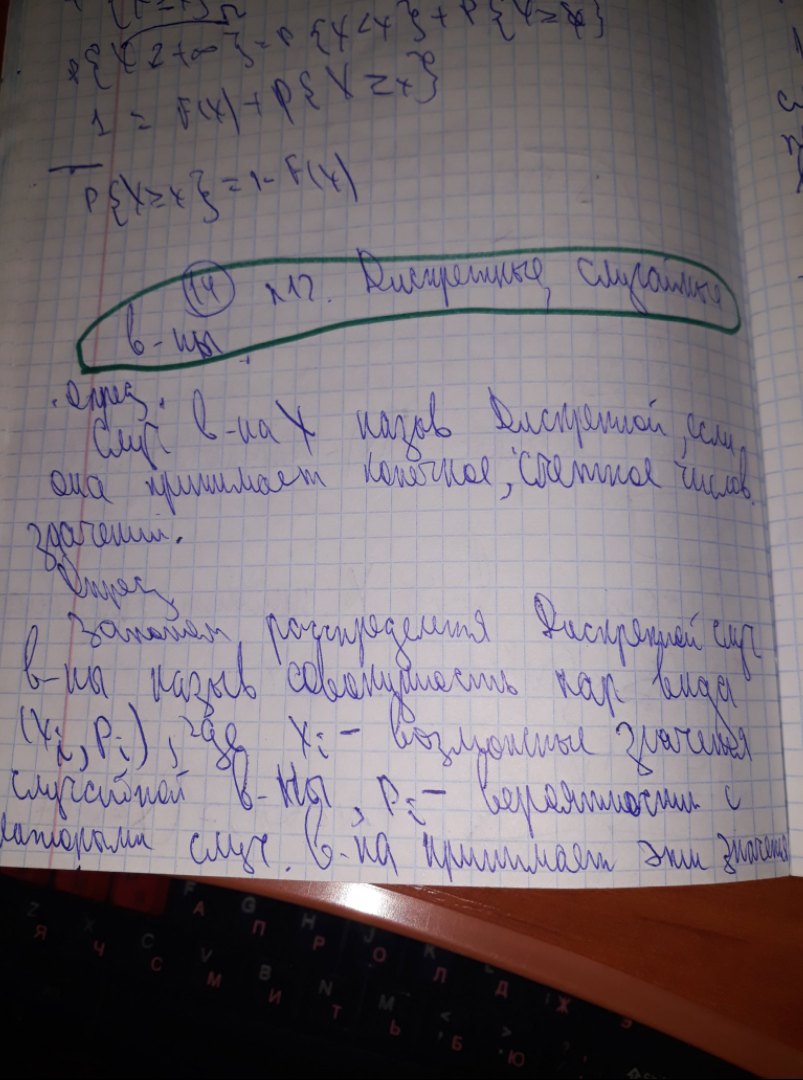 P{X<+∞}=P{X<x}+P{X≥x}
1 = F(x)+P{X≥x}
P{X≥x}=1-F(x)
14 п12. Дискретные случайные
в-ны.
Опред.
Случ в-на X назыв Дискретной, если
она принимает конечное, счетное числов.
значений.
Опред
Законом распределения Дискретной случ
в-ны назыв совокупность пар вида
(xi, pi), где xi - возможные значения
случайной в-ны, pi - вероятности с
которыми случ. в-на принимает эти значения
F G H J K L
А П Р О Л Д
Z X C V B N M < >
Я Ч С М И Т Ь Б Ю Ж Э